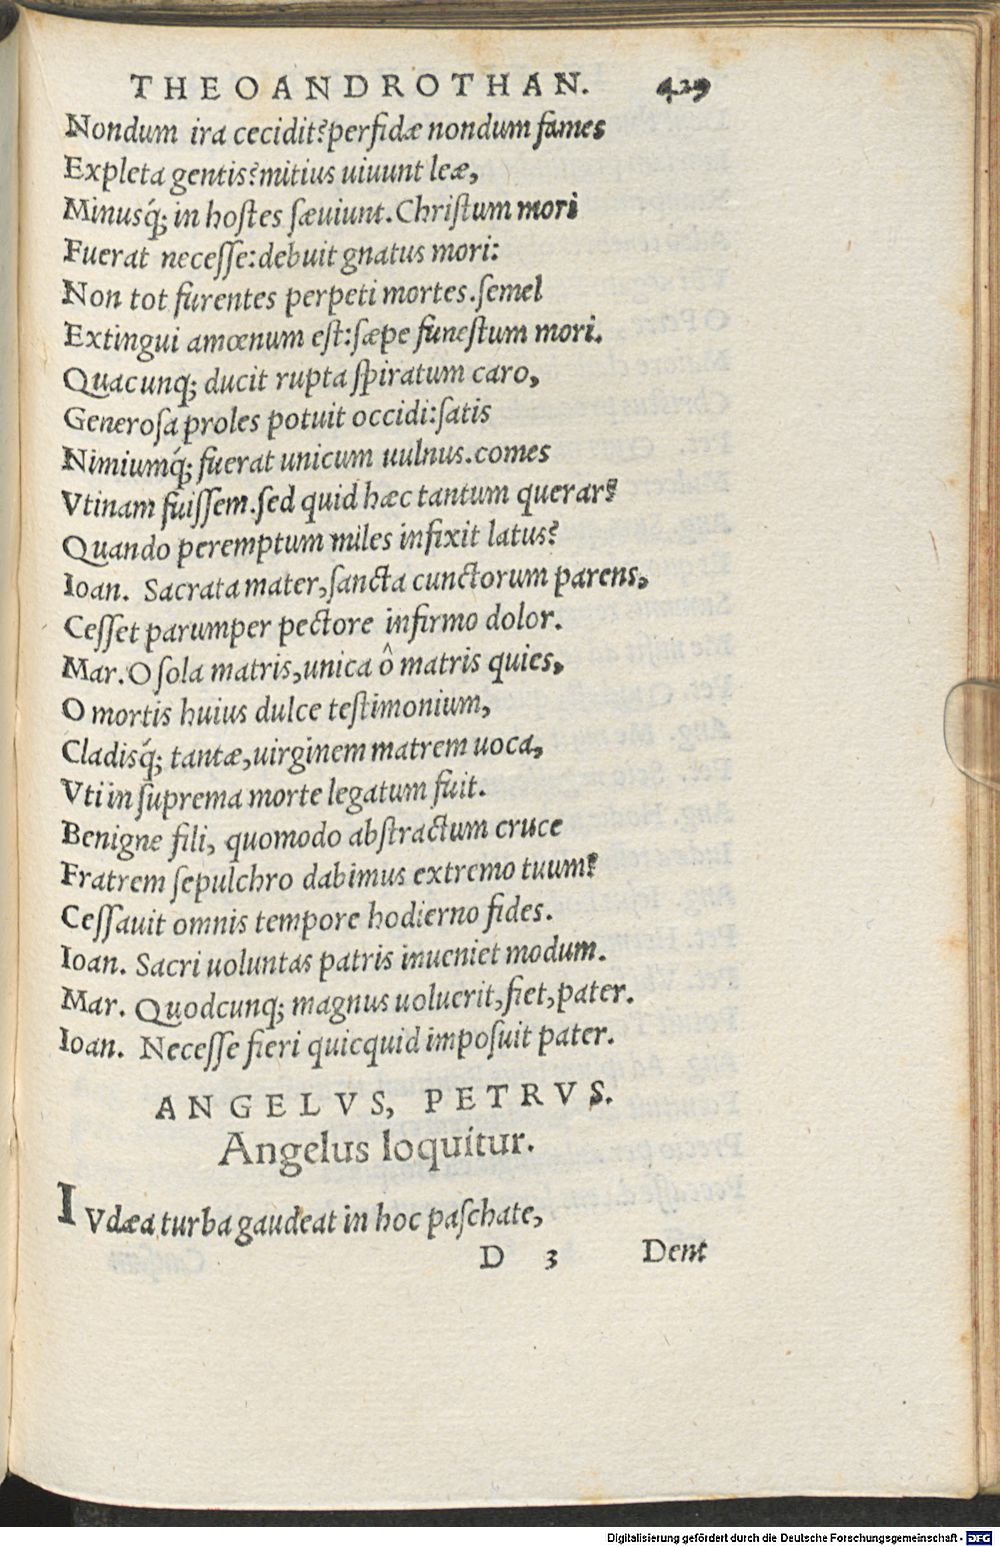 THEOANDROTHAN. 429
Nondum ira cecidit? perfidæ nondum fames
Expleta gentis? mitius uiuunt leæ,
Minusq́; in hostes sæuiunt. Christum mori
Fuerat necesse: debuit gnatus mori:
Non tot furentes perpeti mortes. semel
Extingui amœnum est: sæpe funestum mori.
Quacunq; ducit rupta spiratum caro,
Generosa proles potuit occidi: satis
Nimiumq́; fuerat unicum uulnus. comes
Vtinam fuissem. sed quid hæc tantum querar?
Quando peremptum miles infixit latus?
Ioan. Sacrata mater, sancta cunctorum parens,
Cesset parumper pectore infirmo dolor.
Mar. O sola matris, unica ô matris quies,
O mortis huius dulce testimonium,
Cladisq́; tantæ, uirginem matrem uoca,
Vti in suprema morte legatum fuit.
Benigne fili, quomodo abstractum cruce
Fratrem sepulchro dabimus extremo tuum?
Cessauit omnis tempore hodierno fides.
Ioan. Sacri uoluntas patris inueniet modum.
Mar. Quodcunq; magnus uoluerit, fiet, pater.
Ioan. Necesse fieri quicquid imposuit pater.
ANGELVS, PETRVS.
Angelus loquitur.
IVdæa turba gaudeat in hoc paschate,
D 3 Dent
Digitalisierung gefördert durch die Deutsche Forschungsgemeinschaft - DFG